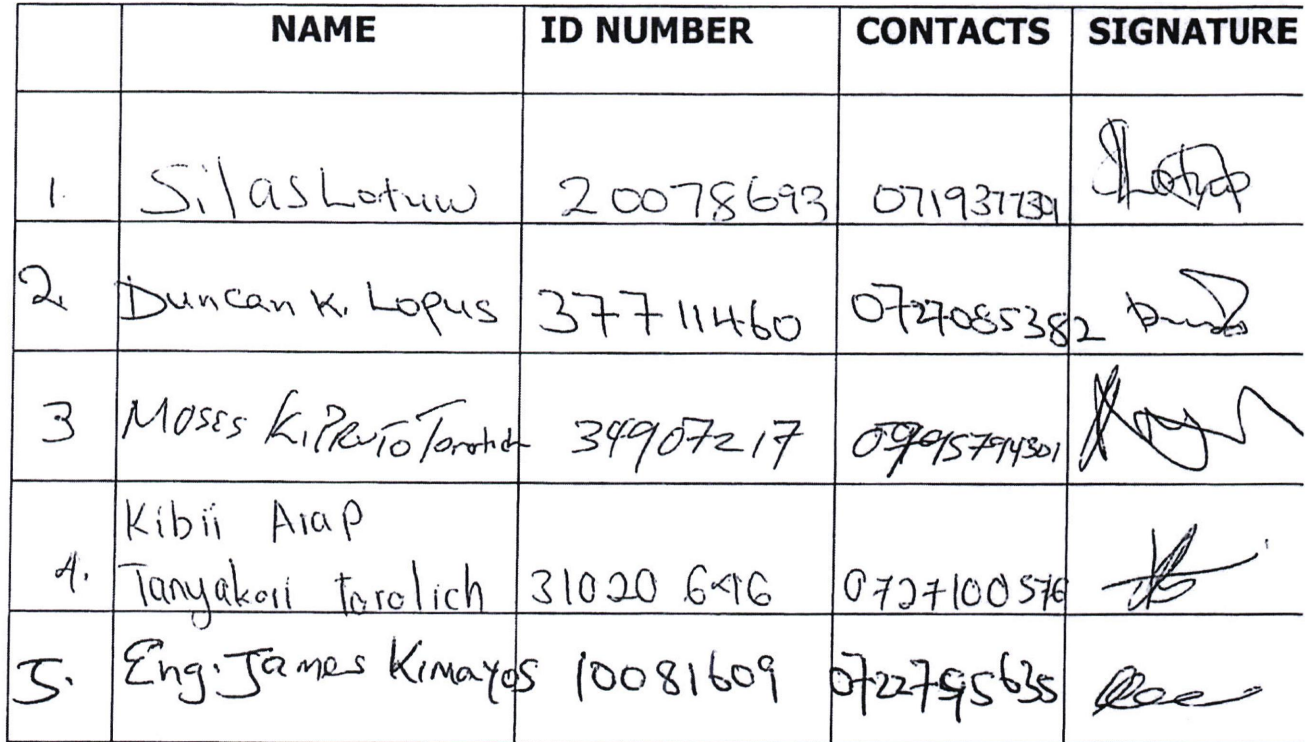 NAME ID NUMBER CONTACTS SIGNATURE
1. Silas Lotuw 20078693
2. Duncan K. Lopus 37711460 0727085382
3 MOSES KIPRUTO Torotich 34907217
Kibii Arap
4. Tanyakori torolich 31020 646 0727100576
5. Eng. James Kimayos 10081609 0722795635